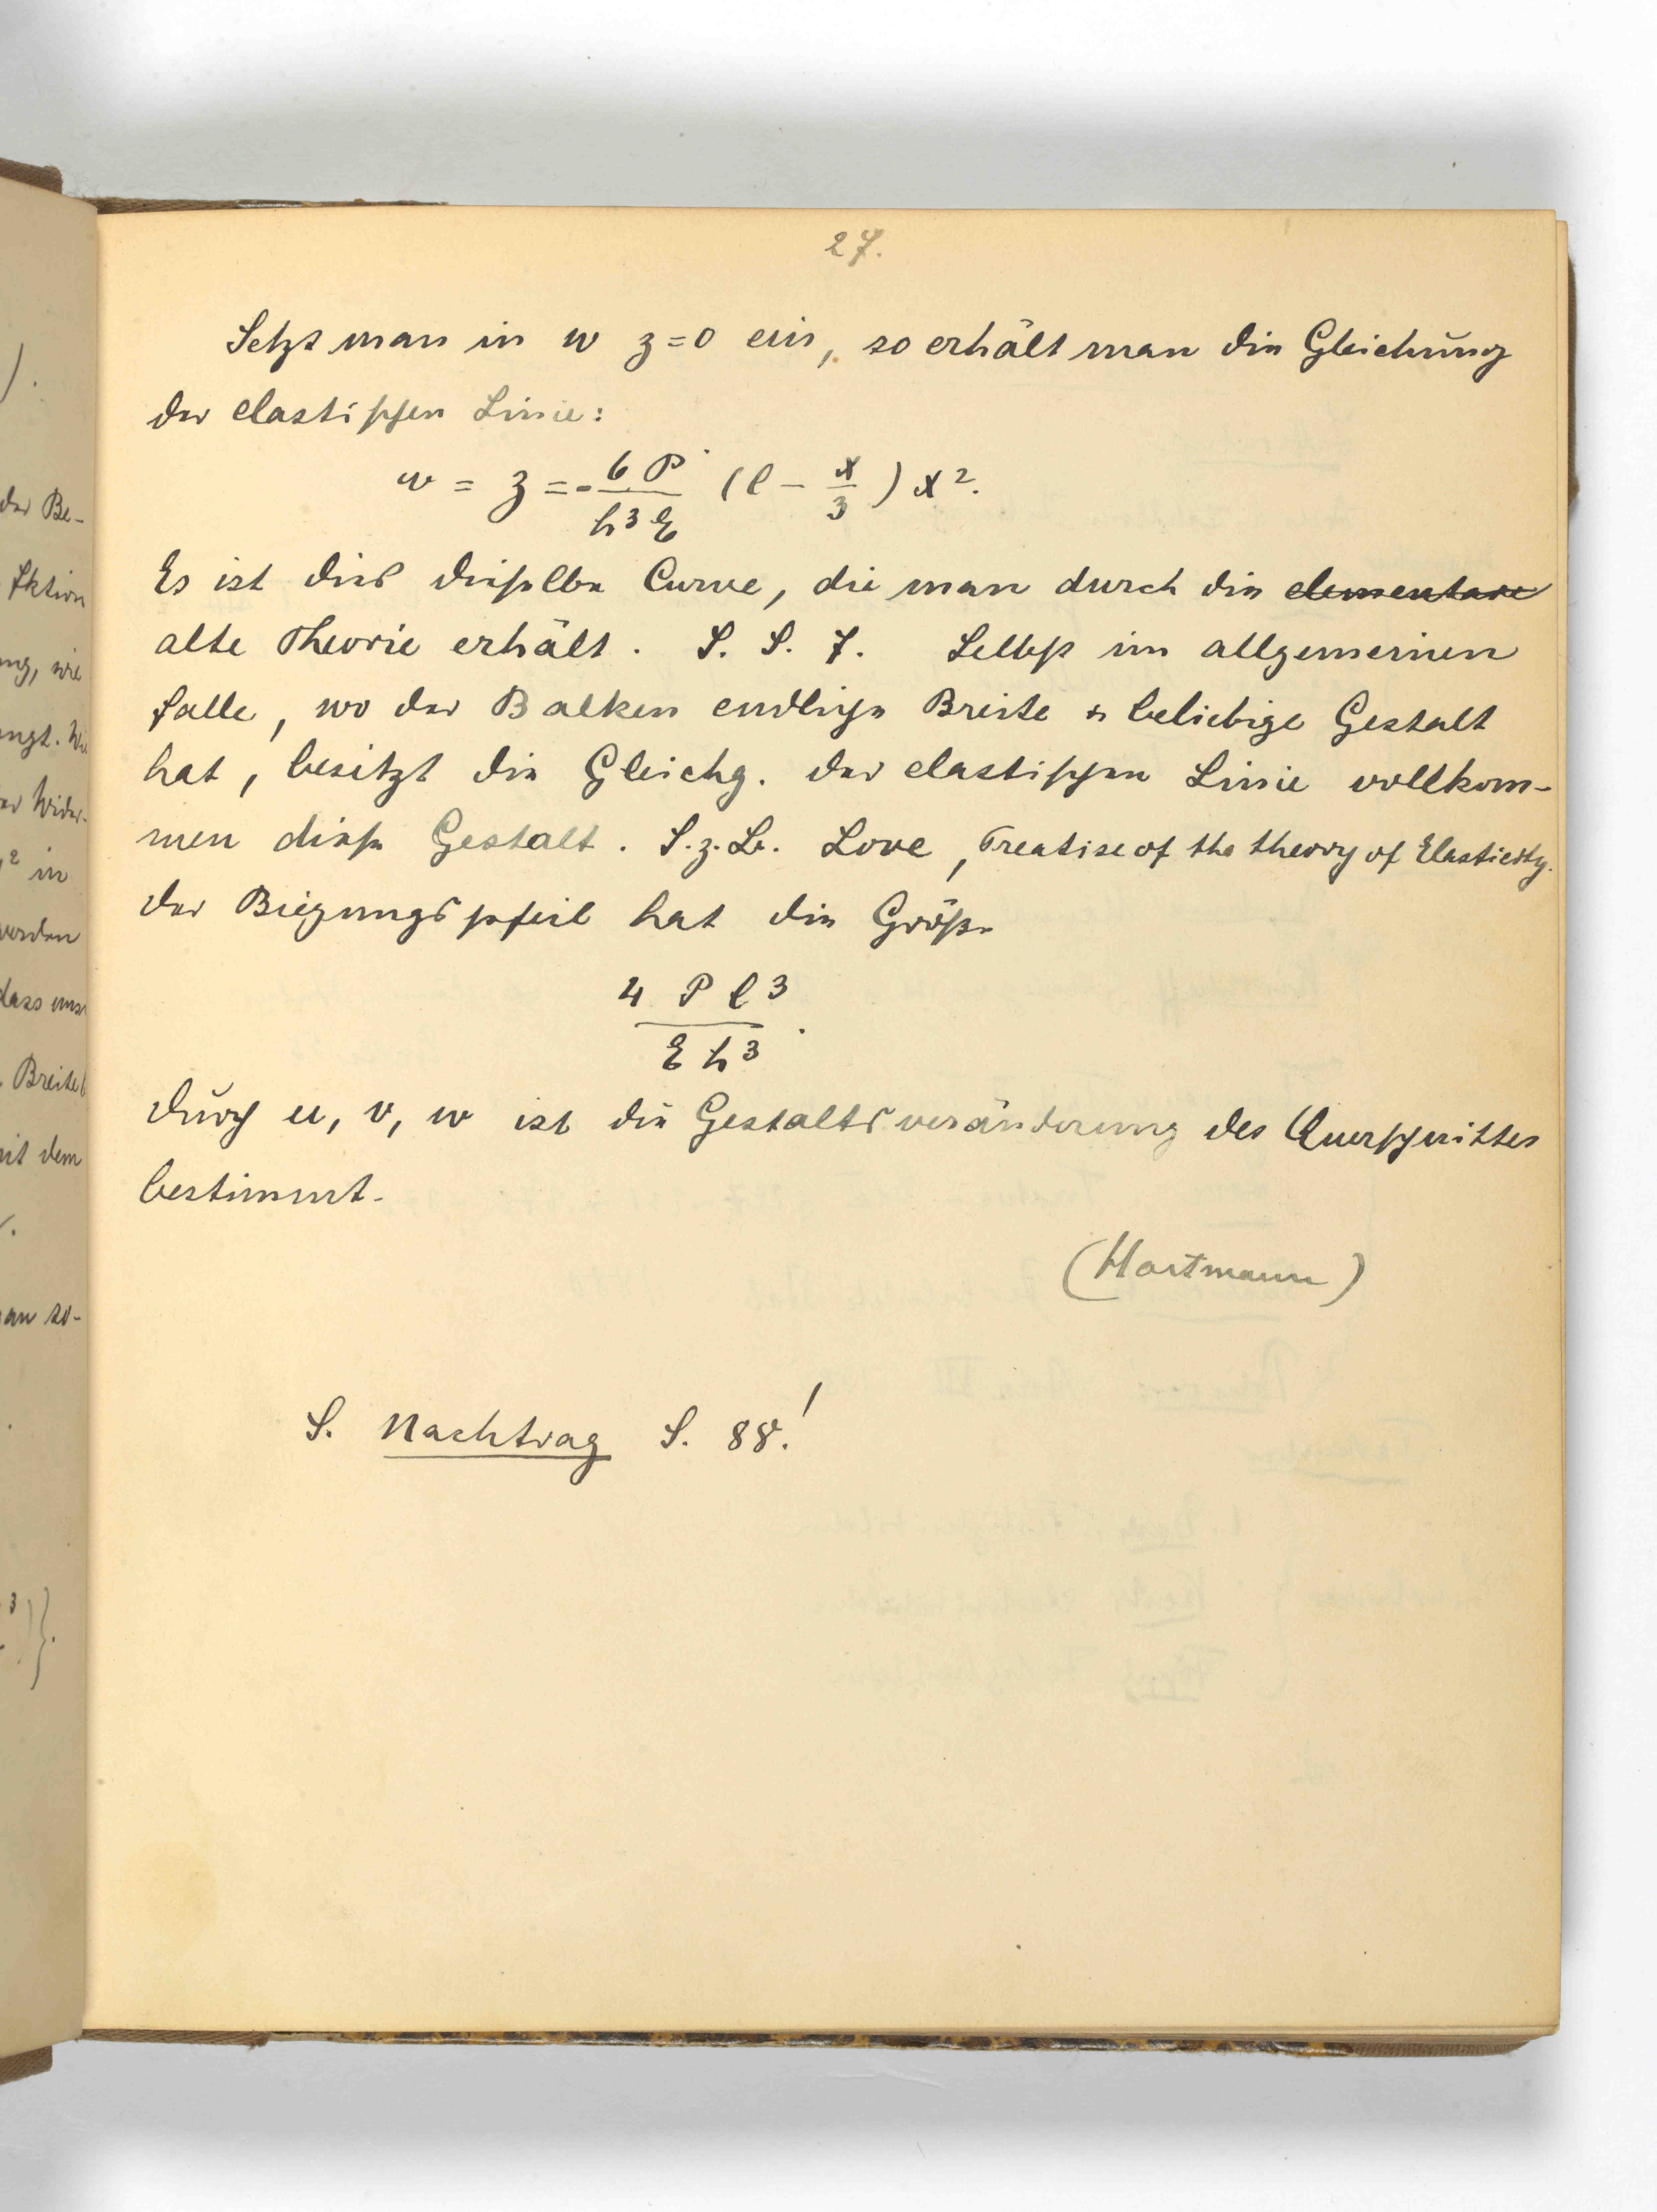 27.
Setzt man in w z=0 ein, so erhält man die Gleichung
der elastischen Linie:
w = z = - 6 P / h³ E (l - x/3) x².
Es ist dies dieselbe Curve, die man durch die elementare
alte Theorie erhält. S. S. 7. Selbst im allgemeinen
Falle, wo der Balken endliche Breite & beliebige Gestalt
hat, besitzt die Gleichg. der elastischen Linie vollkom-
men diese Gestalt. S. z. B. Love, Treatise of the theory of Elasticity.
Der Biegungspfeil hat die Größe
4 P l³ / E h³.
Durch u, v, w ist die Gestaltsveränderung des Querschnittes
bestimmt.
(Hartmann)
S. Nachtrag S. 88!
der Be-
ng, wie
ngt. Wie
der Wider-
² in
werden
dass uns
Breite
mit dem
man so-